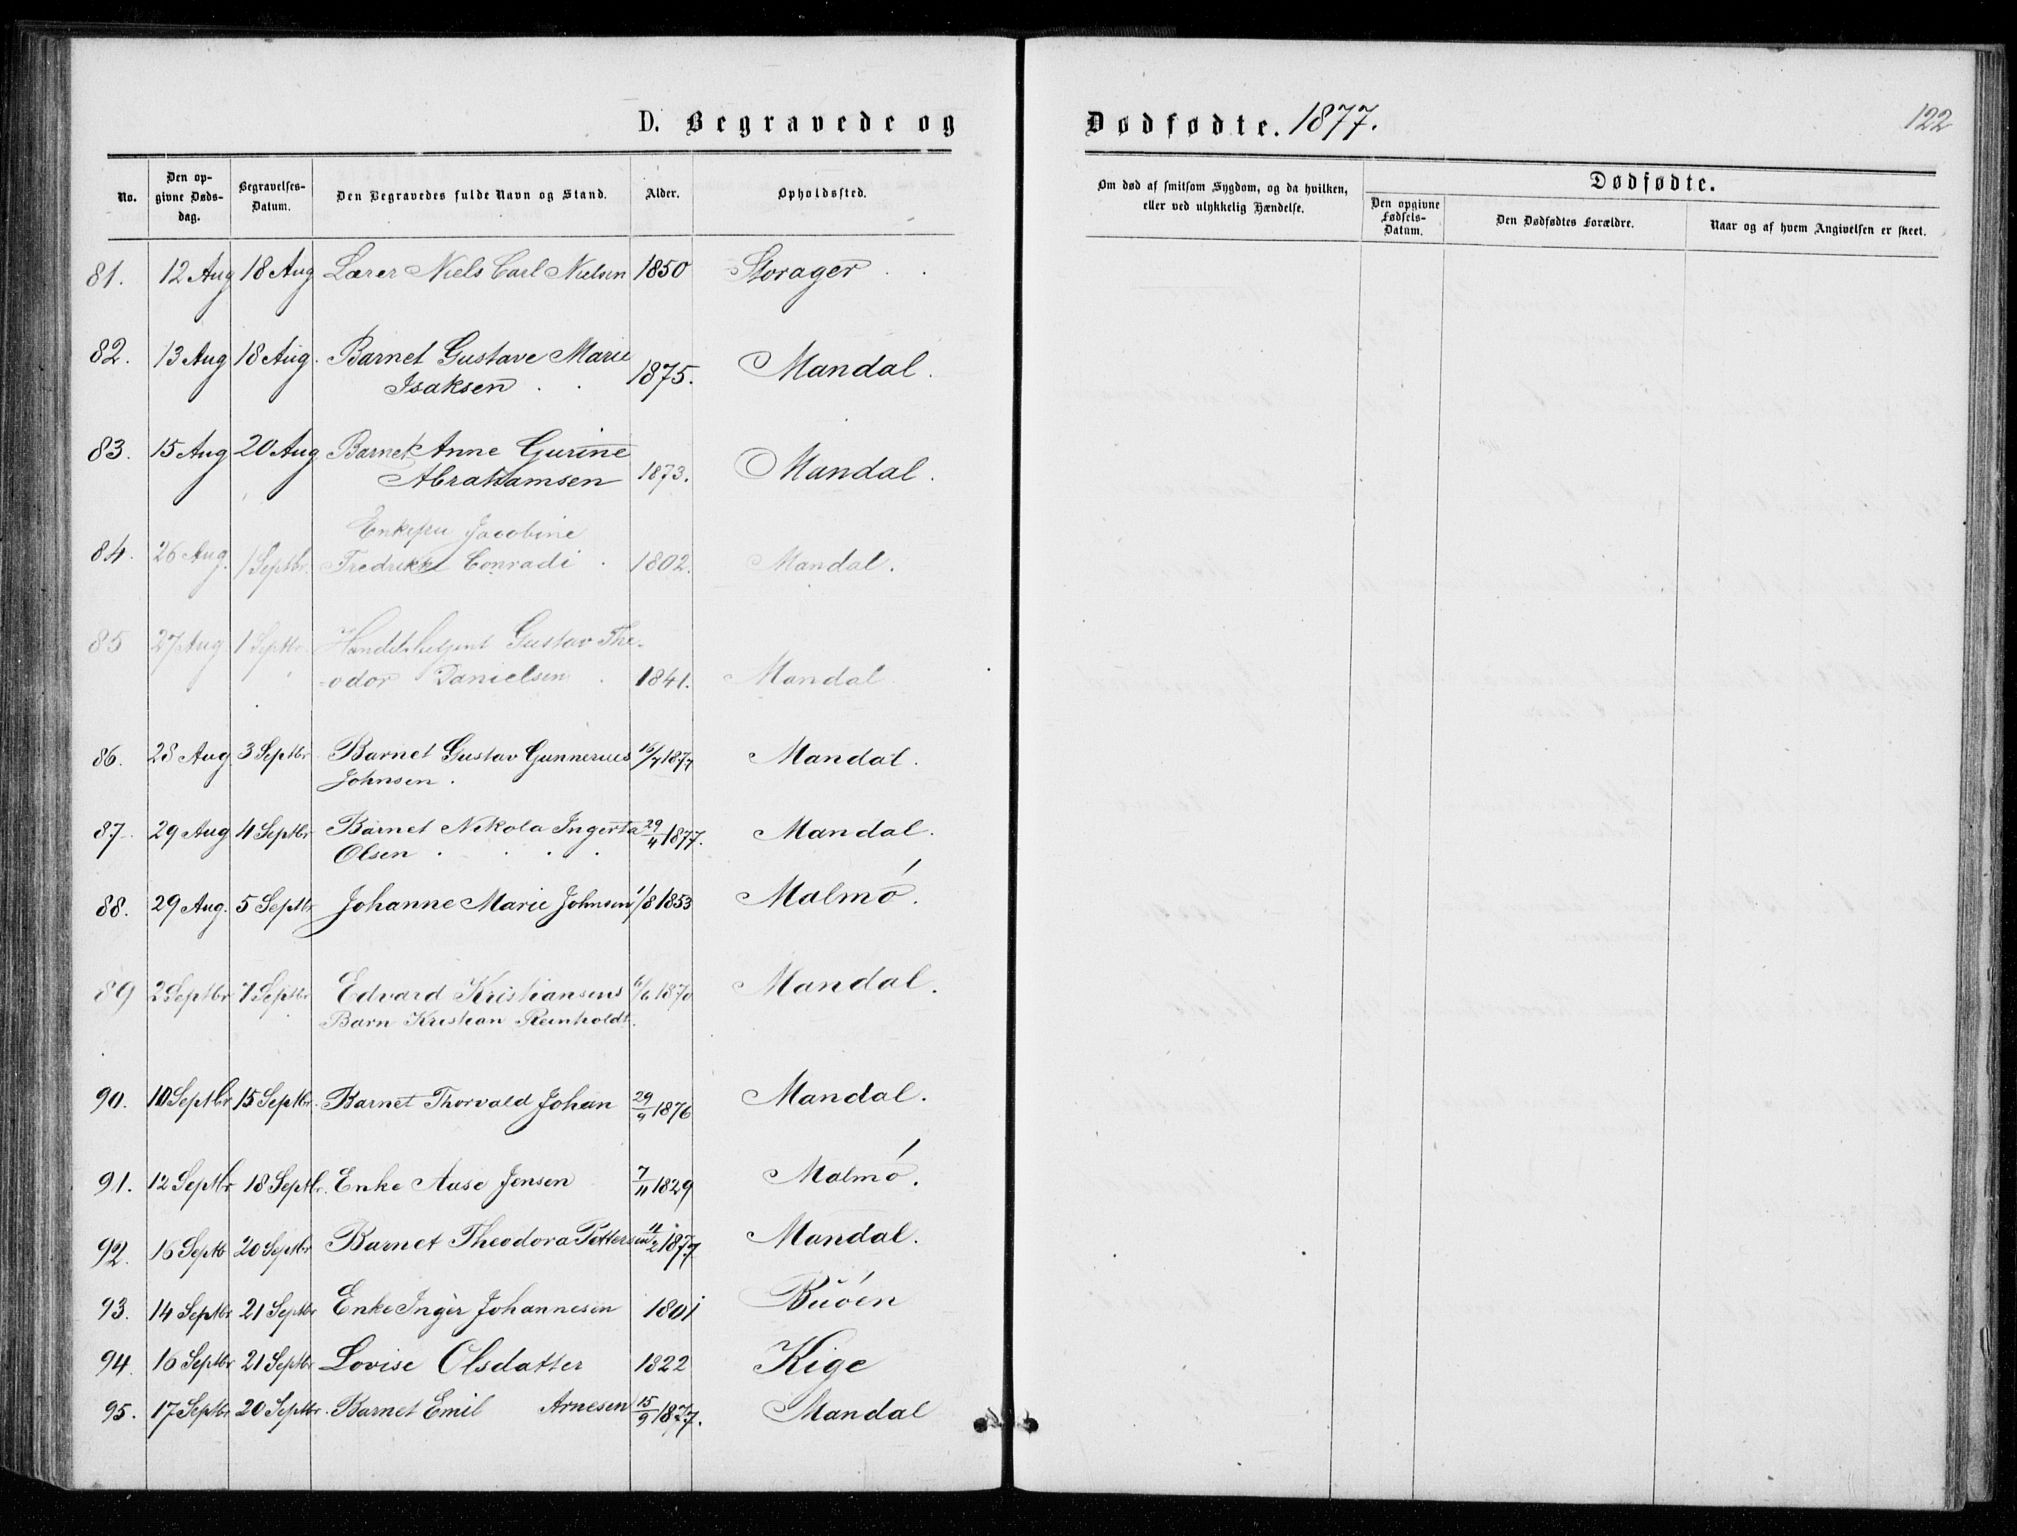 D. Begravede og Dødfødte. 1877.
122
No. | Den opgivne Dødsdag. | Begravelses-Datum. | Den Begravedes fulde Navn og Stand. | Alder. | Opholdssted.
Om død af smitsom Sygdom, og da hvilken, eller ved ulykkelig Hændelse. | Dødfødte. | Den opgivne Fødsels-Datum. | Den Dødfødtes Forældre. | Naar og af hvem Angivelsen er skeet.
81. 12 Aug 18 Aug Lærer Niels Carl Nielsen 1850 Storager
82. 13 Aug 18 Aug. Barnet Gustave Marie
Isaksen 1875. Mandal.
83. 15 Aug 20 Aug Barnet Anne Gurine
Abrahamsen 1873. Mandal.
Enkefru Jacobine
84. 26 Aug. 1 Septbr. Fredrikke Conradi 1802. Mandal.
85 27 Aug 1 Septbr Handelsbetjent Gustav The-
odor Danielsen 1841. Mandal
86. 28 Aug 3 Septbr Barnet Gustav Gunnerius 16/7 1877 Mandal.
Johnsen.
87. 29 Aug 4 Septbr Barnet Nikola Ingerta 29/4 1877. Mandal.
Olsen
88. 29 Aug. 5 Septbr Johanne Marie Johnsen 1/8 1853 Malmø.
89 2 Septbr 7 Septbr Edvard Kristiansens 6/6 1870 Mandal.
Barn Kristian Reinholdt.
90. 10 Septbr 15 Septbr. Barnet Thorvald Johan 29/9 1876 Mandal.
91. 12 Septbr 18 Septbr. Enke Aase Jensen 7/11 1829 Malmø.
92. 16 Septb 20 Septbr Barnet Theodora Pettersen 4/2 1877 Mandal.
93. 14 Septbr 21 Septbr Enke Inger Johannesen 1801 Buøen
94. 16 Septbr 21 Septbr Lovise Olsdatter 1822 Kige
95. 17 Septbr 20 Septbr. Barnet Emil Arnesen 15/9 1877. Mandal